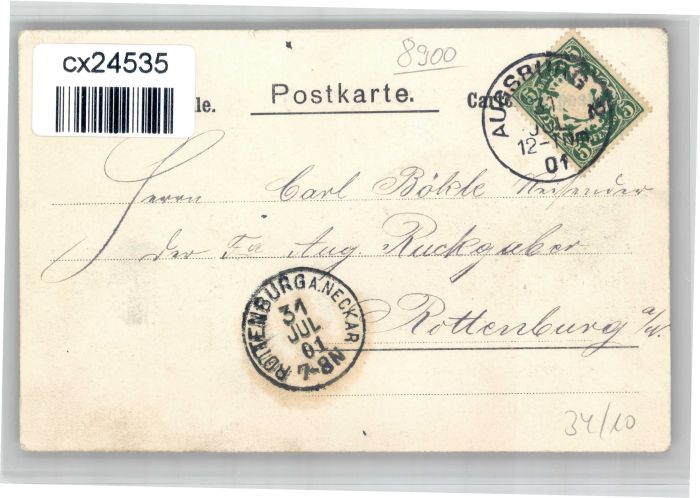 cx24535
8900
le. Postkarte. Carte
5 5
AUGSBURG
31
12-1 Nm
01
Herrn Carl Bökle Reisender
der Fa Aug Ruckgaber
Rottenburg a/N.
ROTTENBURG A. NECKAR
31
JUL
01
7-8N
34/10